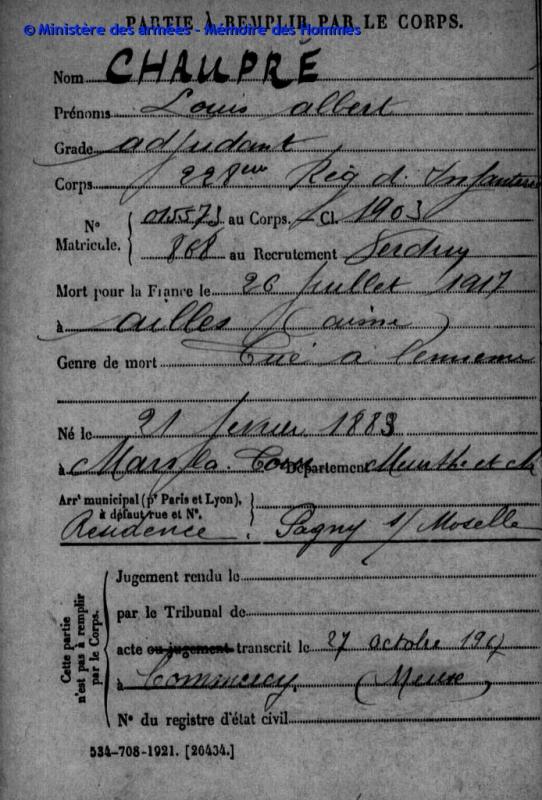 PARTIE À REMPLIR PAR LE CORPS.
© Ministère des armées - Mémoire des Hommes
Nom CHAUPRÉ
Prénoms Louis Albert
Grade adjudant
Corps 228eme Rég d. Infanterie
N° Matricule. 015573 au Corps. - Cl. 1903
868 au Recrutement
Mort pour la France le 26 Juillet 1917
à Ailles (aisne)
Genre de mort Tué à l'ennemi
Né le 21 février 1883
à Mars la Tour Département Meurthe et M
Arrt municipal (pr Paris et Lyon),
à défaut rue et N°.
Residence. Pagny s/ Moselle
Cette partie n'est pas à remplir par le Corps.
Jugement rendu le
par le Tribunal de
acte ou jugement transcrit le 27 octobre 1917
à Commercy (Meuse)
N° du registre d'état civil
534-708-1921. [26434.]